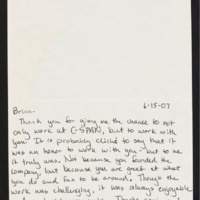 6-15-07
Brian-
Thank you for giving me the chance to not
only work at C-SPAN, but to work with
you. It is probably cliché to say that it
was an honor to work with you - but to me
it truly was. Not because you founded the
company, but because you are great at what
you do and fun to be around. Though the
work was challenging, it was always enjoyable